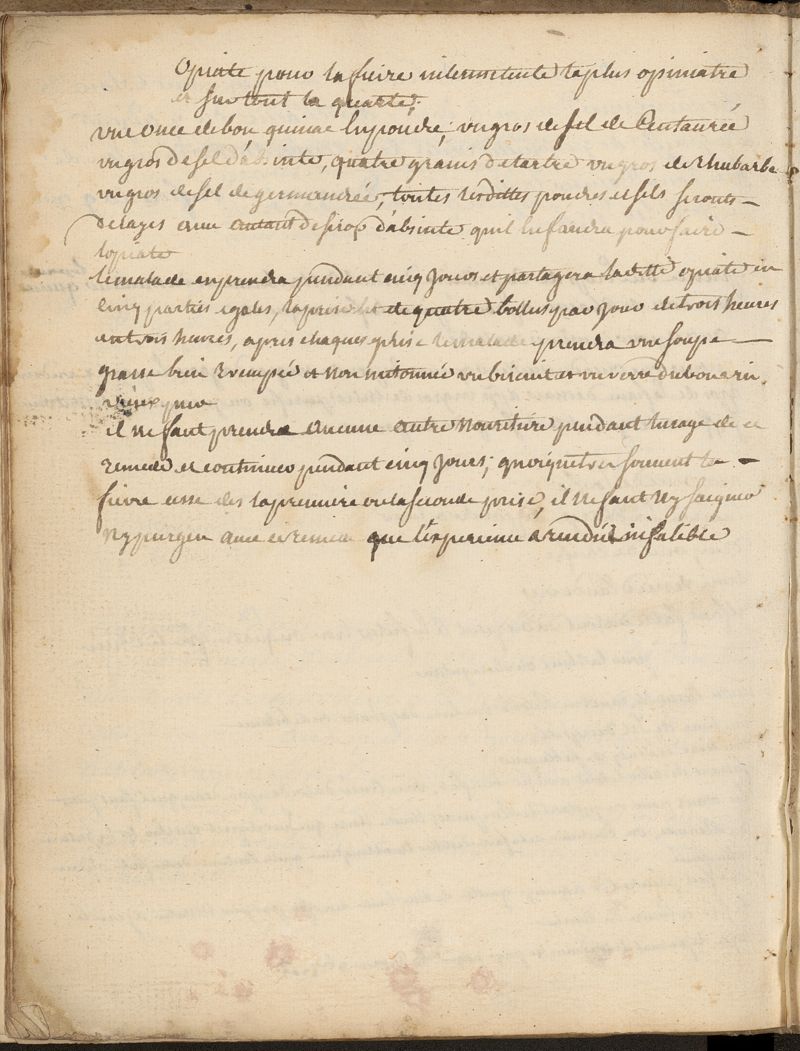 Opiate pour la fievre intermittente la plus opiniatre
et sur tout la quarte,
une once de bon quinac en poudre, un gros de sel de Centaurée
un gros de sel d'absinte, quatre grains de tartre un gros de Rhubarbe
un gros de sel de germandrée, toutes lesdittes poudres et sels seronts
delayes avec autant de sirop d'absinte qu'il en faudra pour faire
lopiate
le malade en prendra pendant cinq jours et partagera laditte opiate en
cinq parties egales, la prise est de quatre bollus par jour de trois heures
en trois heures, apres chaques prise le malade prendra une soupe
grasse bien trempée et non mitonnée un biscuit et un verre du bon vin
vieux pur
il ne faut prendre aucune autre nouriture pendant lusage de ce
remede et continuer pendant cinq jours, quoique tres souvent la
fievre cesse des la premiere ou la seconde prise, il ne faut ny saigner
ny purger avec ce remede que l'experience a rendue infalible